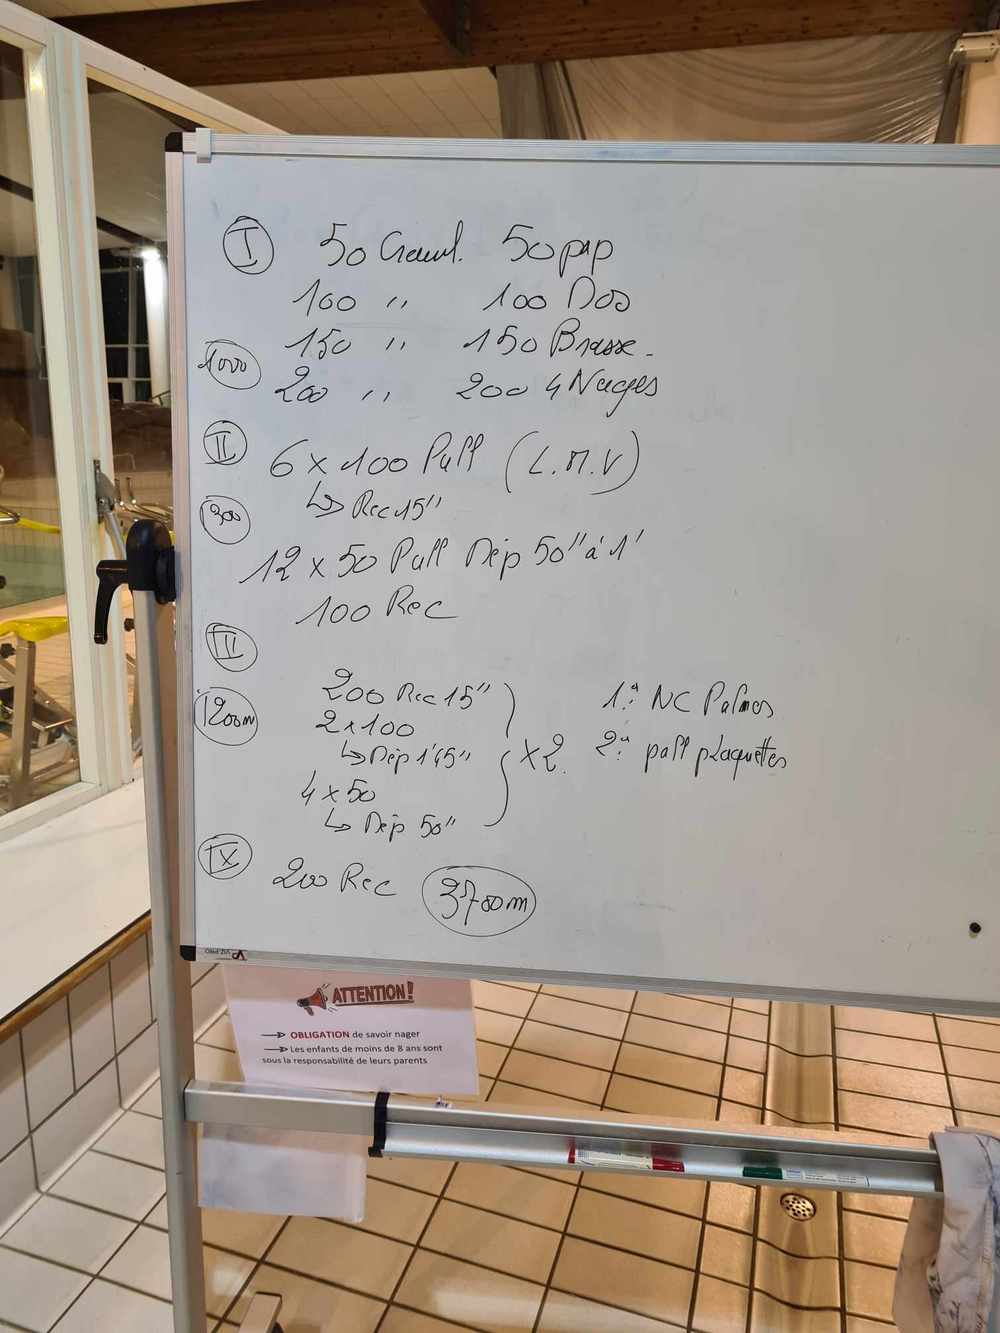 I 50 Crawl. 50 pap
100 " 100 Dos
150 " 150 Brasse.
1000
200 " 200 4 Nages
II
6 x 100 Pull (L.M.V)
↳ Rec 15"
300
12 x 50 Pull Dép 50" à 1'
100 Rec
III
200 Rec 15" 1: NC Palmes
1200m
2 x 100
↳ Dép 1'45" x2. 2: pull plaquettes
4 x 50
↳ Dép 50"
IX
200 Rec 3700m
ATTENTION!
OBLIGATION de savoir nager
Les enfants de moins de 8 ans sont
sous la responsabilité de leurs parents